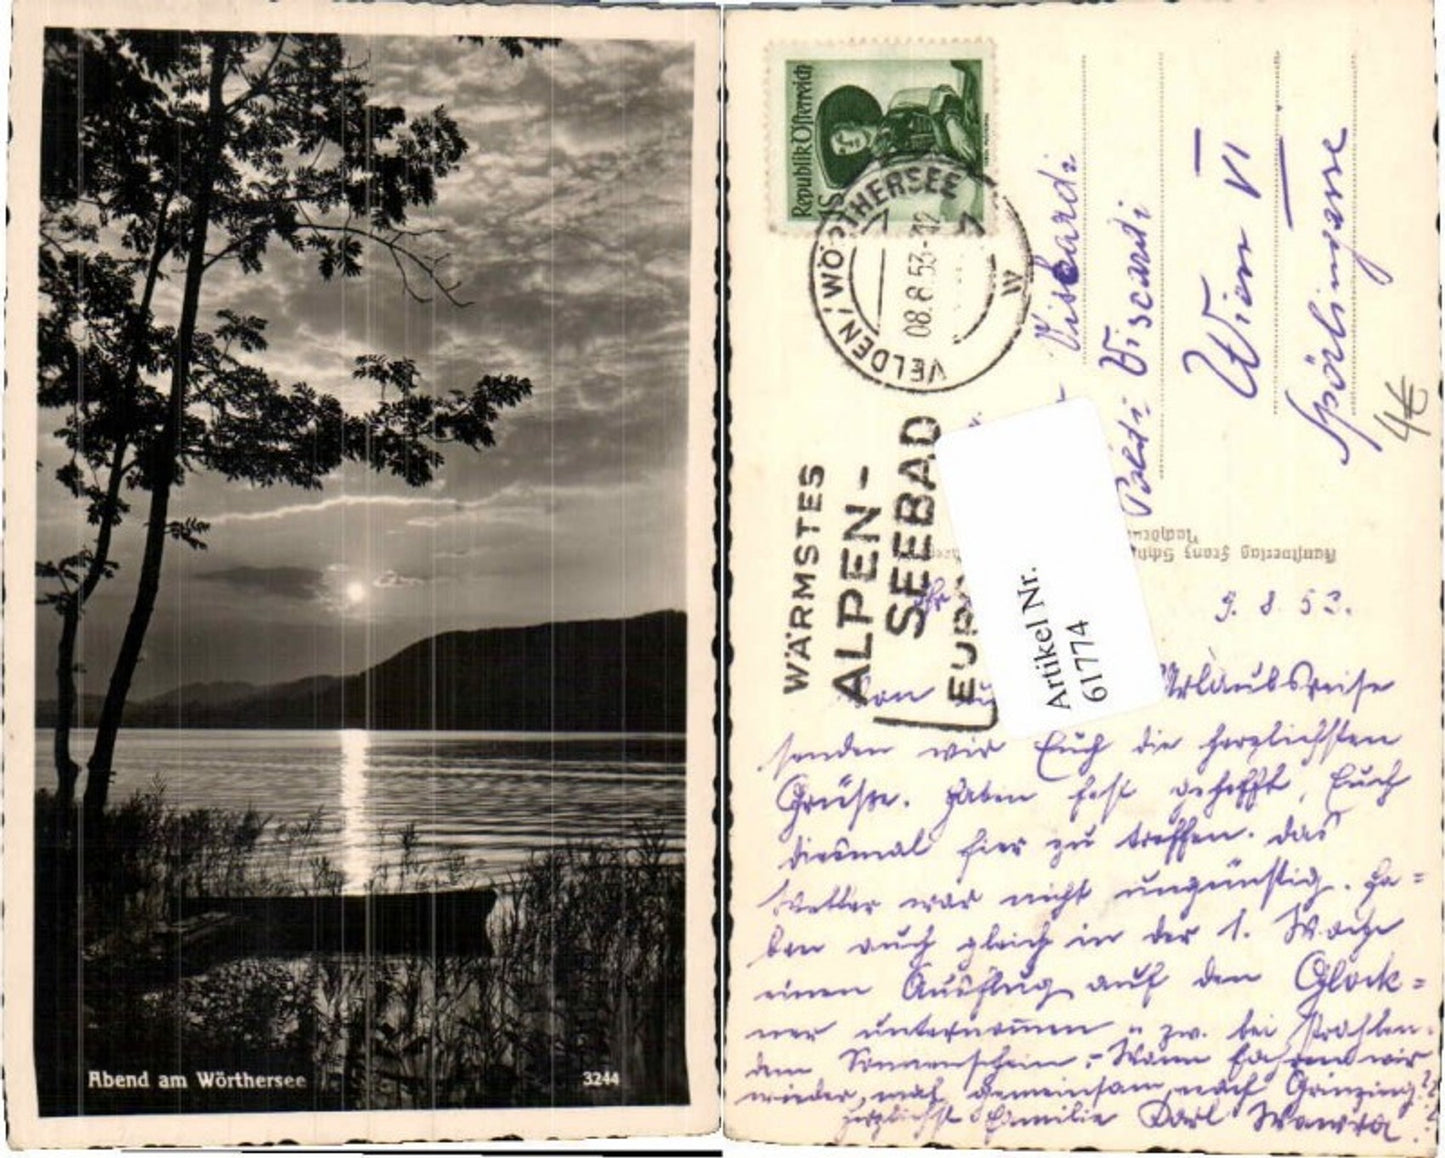 Abend am Wörthersee
3244
Republik Österreich
VELDEN/WÖRTHERSEE
08.8.53-12
WÄRMSTES
ALPEN-
SEEBAD
Artikel Nr.
61774
Poldi Viscardi
Wien VI
4€
9. 8. 53.
Urlaubsreise
senden wir Euch die herzlichsten
Grüße. Haben fest gehofft, Euch
diesmal hier zu treffen. Das
Wetter war nicht ungünstig. Ha=
ben auch gleich in der 1. Woche
einen Ausflug auf den Glock=
ner unternommen u. zw. bei strahlen-
dem Sonnenschein. Wann fahren wir
wieder mal gemeinsam nach Grinzing?
Herzlichst Familie Karl Wawra